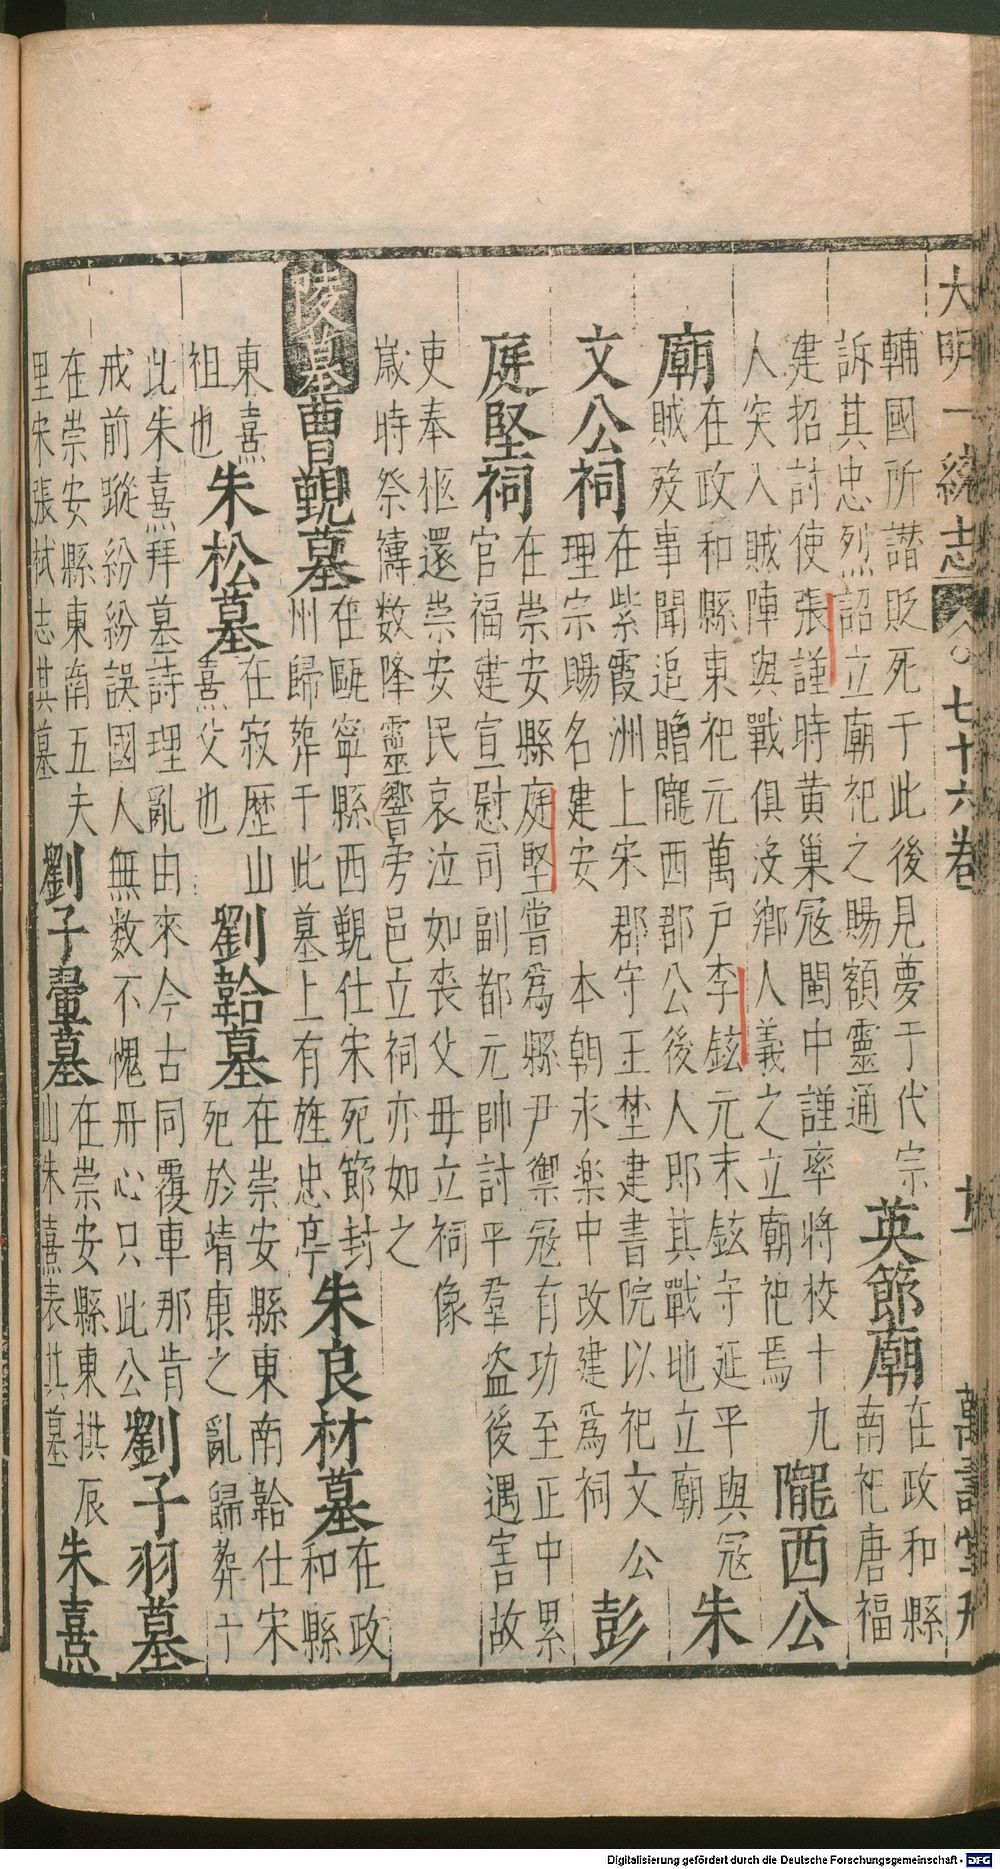 大明一統志 七十六卷 十一 萬壽堂刊
輔國所譖貶死于此後見夢于代宗
訴其忠烈詔立廟祀之賜額靈通
英節廟
在政和縣
南祀唐福
建招討使張謹時黃巢冦閩中謹率將校十九
人突入賊陣與戰俱沒鄉人義之立廟祀焉
隴西公
廟
在政和縣東祀元萬戶李鉉元末鉉守延平與冦
賊殁事聞追贈隴西郡公後人即其戰地立廟
朱
文公祠
在紫霞洲上宋郡守王埜建書院以祀文公
理宗賜名建安 本朝永楽中改建爲祠
彭
庭堅祠
在崇安縣庭堅嘗爲縣尹禦冦有功至正中累
官福建宣慰司副都元帥討平羣盗後遇害故
吏奉柩還崇安民哀泣如丧父母立祠像
歲時祭禱数降靈響旁邑立祠亦如之
陵墓
曹覲墓
在甌寧縣西覲仕宋死節封
州歸葬于此墓上有旌忠亭
朱良材墓
在政
和縣
東熹
祖也
朱松墓
在寂歴山
熹父也
劉韐墓
在崇安縣東南韐仕宋
死於靖康之亂歸葬于
此朱熹拜墓詩理亂由來今古同覆車那肯
戒前蹤紛紛誤國人無数不愧丹心只此公
劉子羽墓
在崇安縣東南五夫
里宋張栻志其墓
劉子翬墓
在崇安縣東拱辰
山朱熹表其墓
朱熹
Digitalisierung gefördert durch die Deutsche Forschungsgemeinschaft - DFG